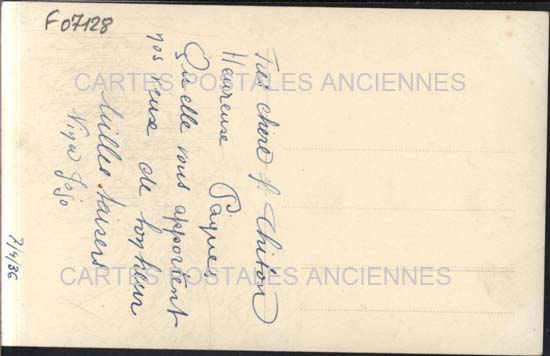 F07128
CARTES POSTALES ANCIENNES
Très chère f. Chiton
Heureuse Pâques
Qu'elle vous apportent
nos vœux de bonheur
Milles baisers
Nina Jojo
7/4/36
CARTES POSTALES ANCIENNES